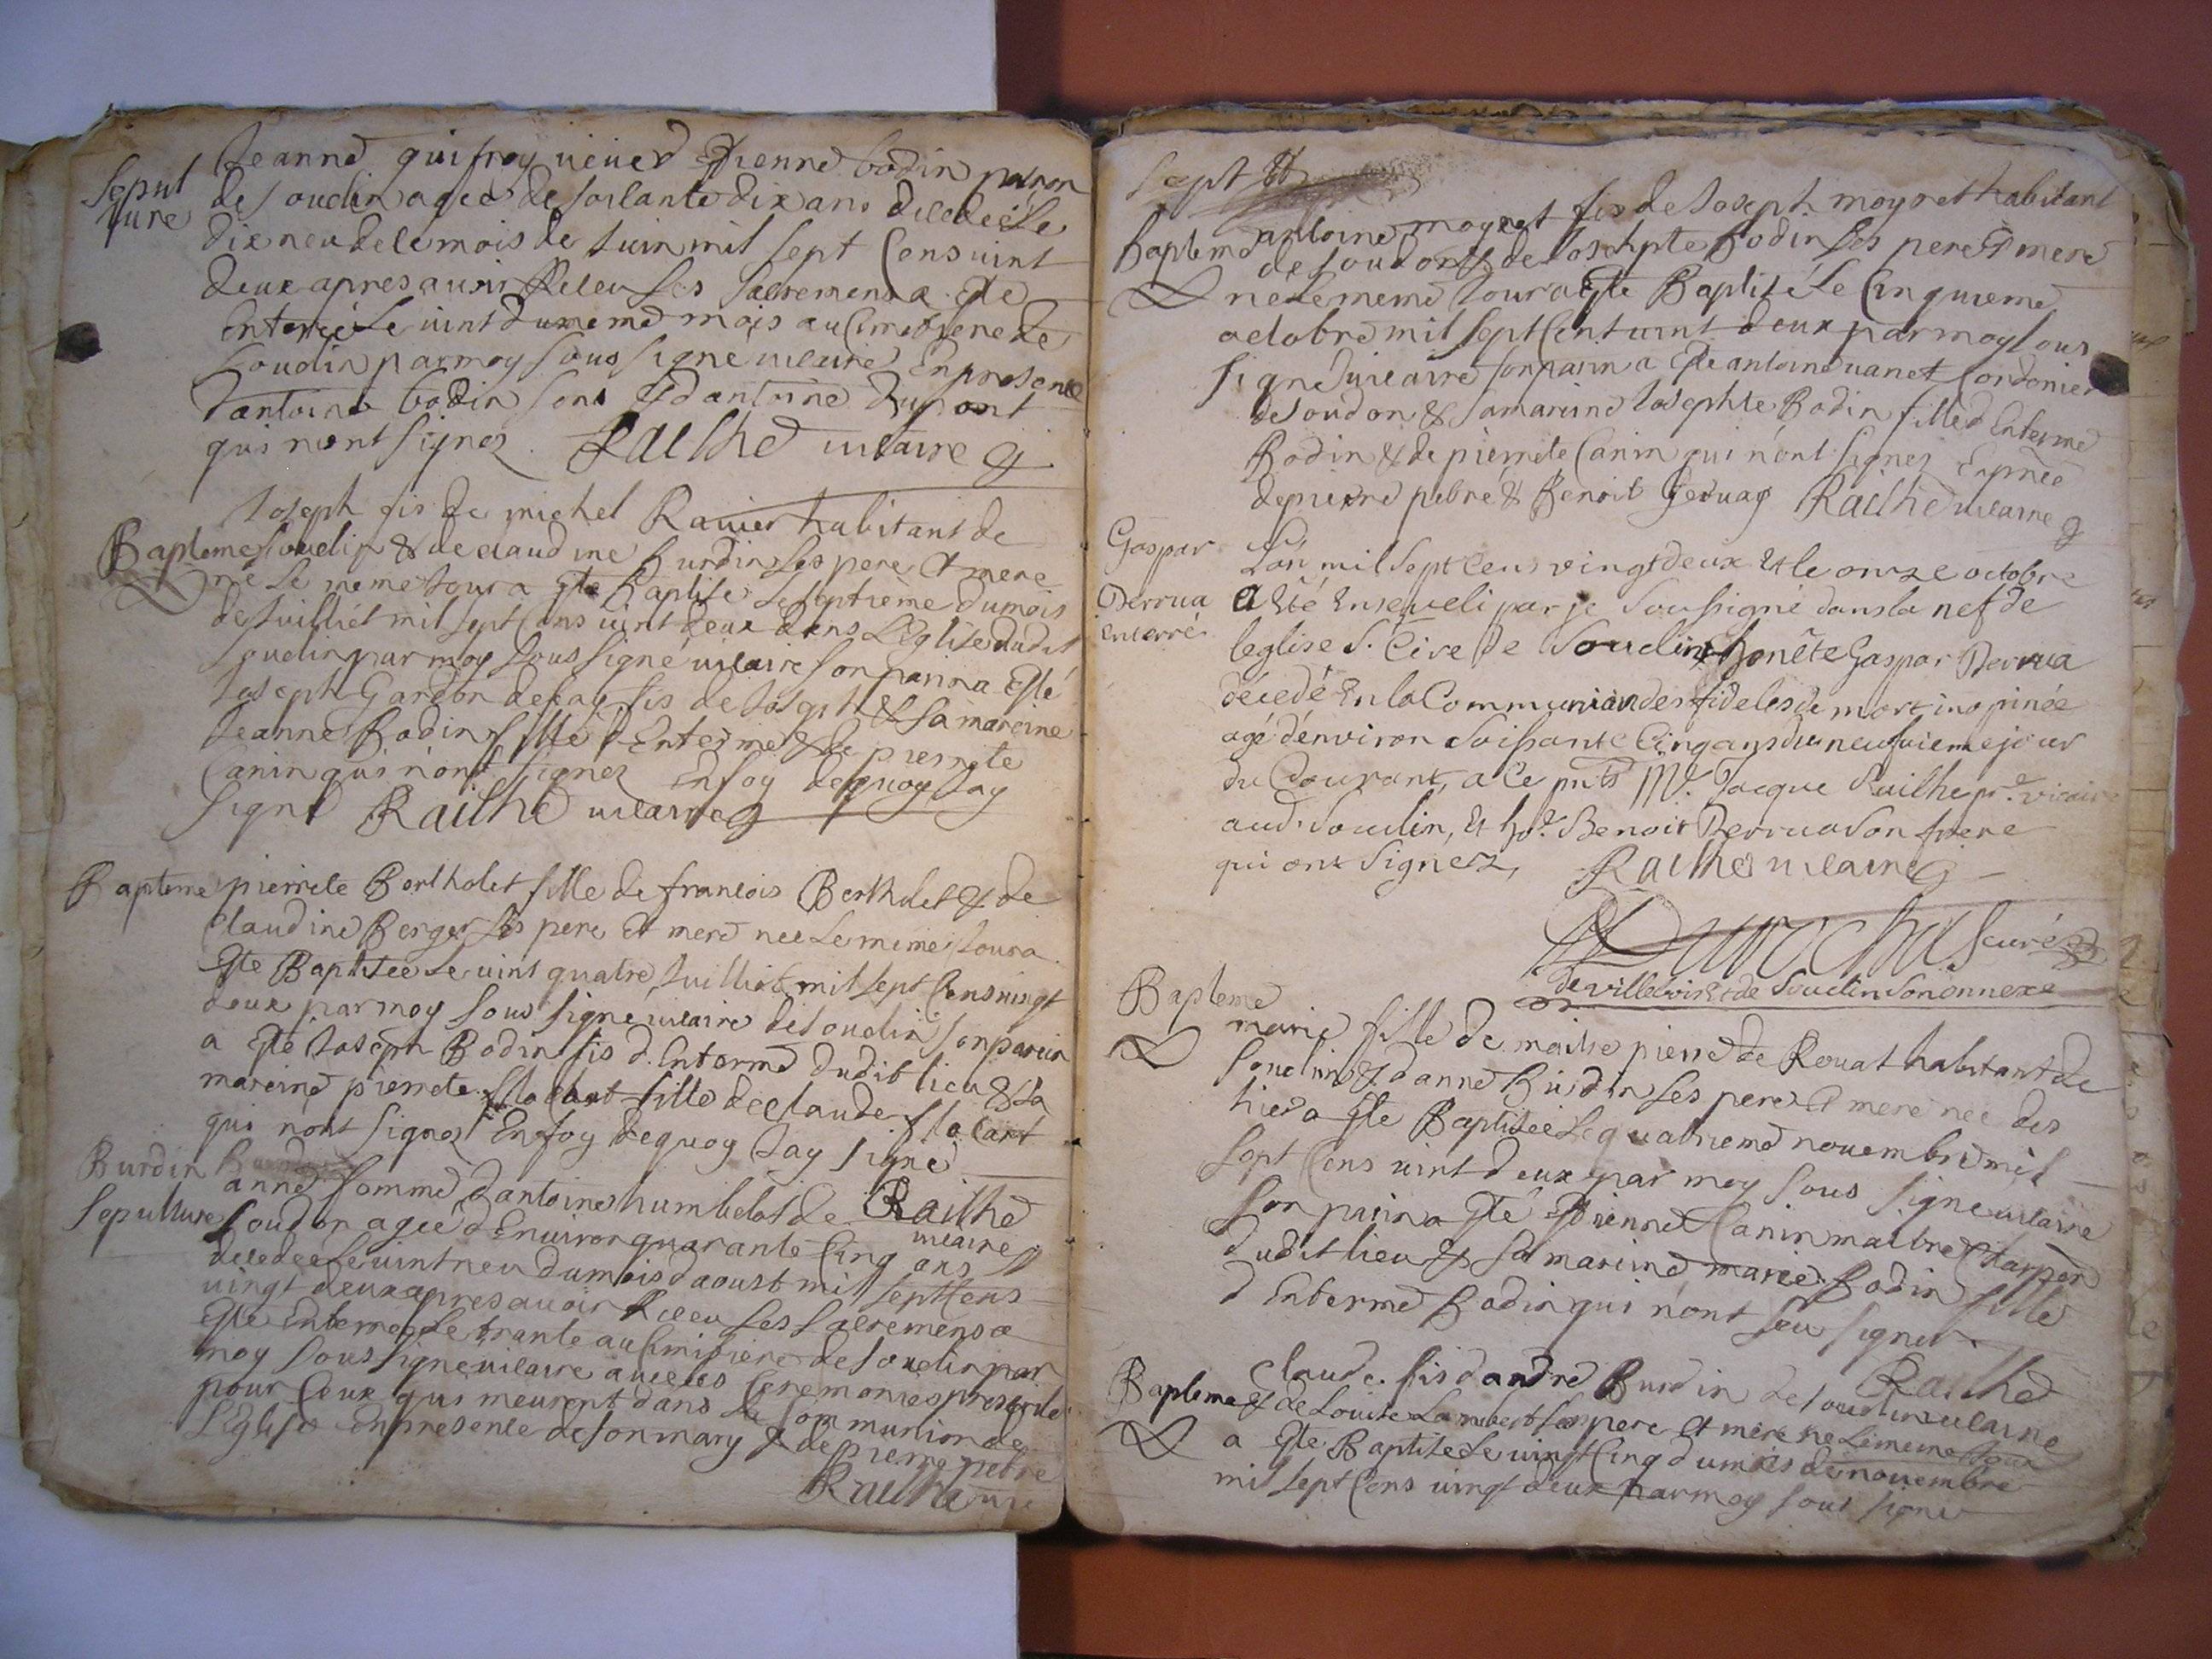 Sepul
ture
Jeanne guifray veuve Etienne bodin patron
de soudin agee de soisante dix ans decedeé le
dix neu de le mois de Juin mil sept Cens vint
deux apres avoir Releu les sacremens a Este
Enterreé le vint du meme mois au Cimetiere de
soudin par moy sous signé vicaire En presence
d'antoine bodin son et d'antoine Dupont
qui n'ont signez. Railhe vicaire
Bapteme
Joseph fis de michel Ravier habitant de
soudin & de claudine Burdin ses pere et mere
né le meme Jour a Esté Baptisé le septieme du mois
de Juilliet mil sept Cens vint deux dans L'Eglise dudit
soudin par moy sous signé vicaire son parin a Esté
Joseph Gardon de fis de Joseph & sa mareine
Jeanne Bodin fille d'Enterme & de pierrete
Canin qui n'ont signez En foy de quoy Jay
signé Railhe vicaire
Bapteme
pierrete Bertholet fille de francois Bertholet & de
Claudine Berger ses pere et mere neé le meme Jour a
Este Baptiseé le vint quatre Juilliet mil sept Cens vingt
deux par moy sous signé vicaire de soudin son parein
a Esté Joseph Bodin fis d'Enterme dudit lieu & sa
mareine pierrete flachat fille de claude flachat
qui n'ont signez En foy de quoy Jay signé
Railhe
vicaire
Burdin
Sepulture
anne femme d'antoine humbelot de
soudon ageé d'Environ quarante Cinq ans
decedeé le vint neu du mois d'aoust mil sept Cens
vingt deux apres avoir Releu ses sacremens a
Este Enterreé le trante au Cimitiere de soudin par
moy sous signé vicaire avec les Ceremonies prescrite
pour Ceux qui meurent dans la Communion de
L'Eglise En presence de son mary & de pierre pebre
Railhe vic
Sept
Bapteme
antoine moynet fis de Joseph moynet habitant
de soudon & de Josephte Bodin ses pere et mere
né le meme Jour a Este Baptisé le Cinquieme
octobre mil sept Cent vint deux par moy sous
signé vicaire son parin a Este antoine vanet Cordonier
de soudon & sa mareine Josephte Bodin fille d'Enterme
Bodin & de pierrete Canin qui n'ont signez
de pierre pebre & Benoit Railhe vicaire
Gaspar
Derrua
enterré
L'an mil sept cens vingt deux & le onze octobre
a été enseveli par je soussigné dans la nef de
leglise S. Cire de Soudin honête Gaspar Derrua
décedé en la Communion des fideles de mort inopinée
agé d'environ soissante Cinq ans du neufvieme jour
du Courant, a ce pnts Mr. Jacque Railhe pr. vicaire
aud. soudin, & ho. Benoit Derrua son frere
qui ont signéez, Railhe vicaire
curé
de villevoir & de Soudin son annexe
Bapteme
marie fille de maitre pierre de Rouat habitant de
soudin & d'anne Burdin ses pere et mere neé des
hier a Este Baptiseé le quatrieme novembre mil
sept Cens vint deux par moy sous signe vicaire
son parin a Esté Etienne Canin maitre Charpen
dudit lieu & sa mareine marie Bodin fille
d'Enterme Bodin qui n'ont seu signer
Railhe
vicaire
Bapteme
Claude fis d'andre Burdin de soudin
& de Louise Lambert ses pere et mere ne le meme Jour
a Este Baptise le vingt Cinq du mois de novembre
mil sept Cens vingt deux par moy sous signe